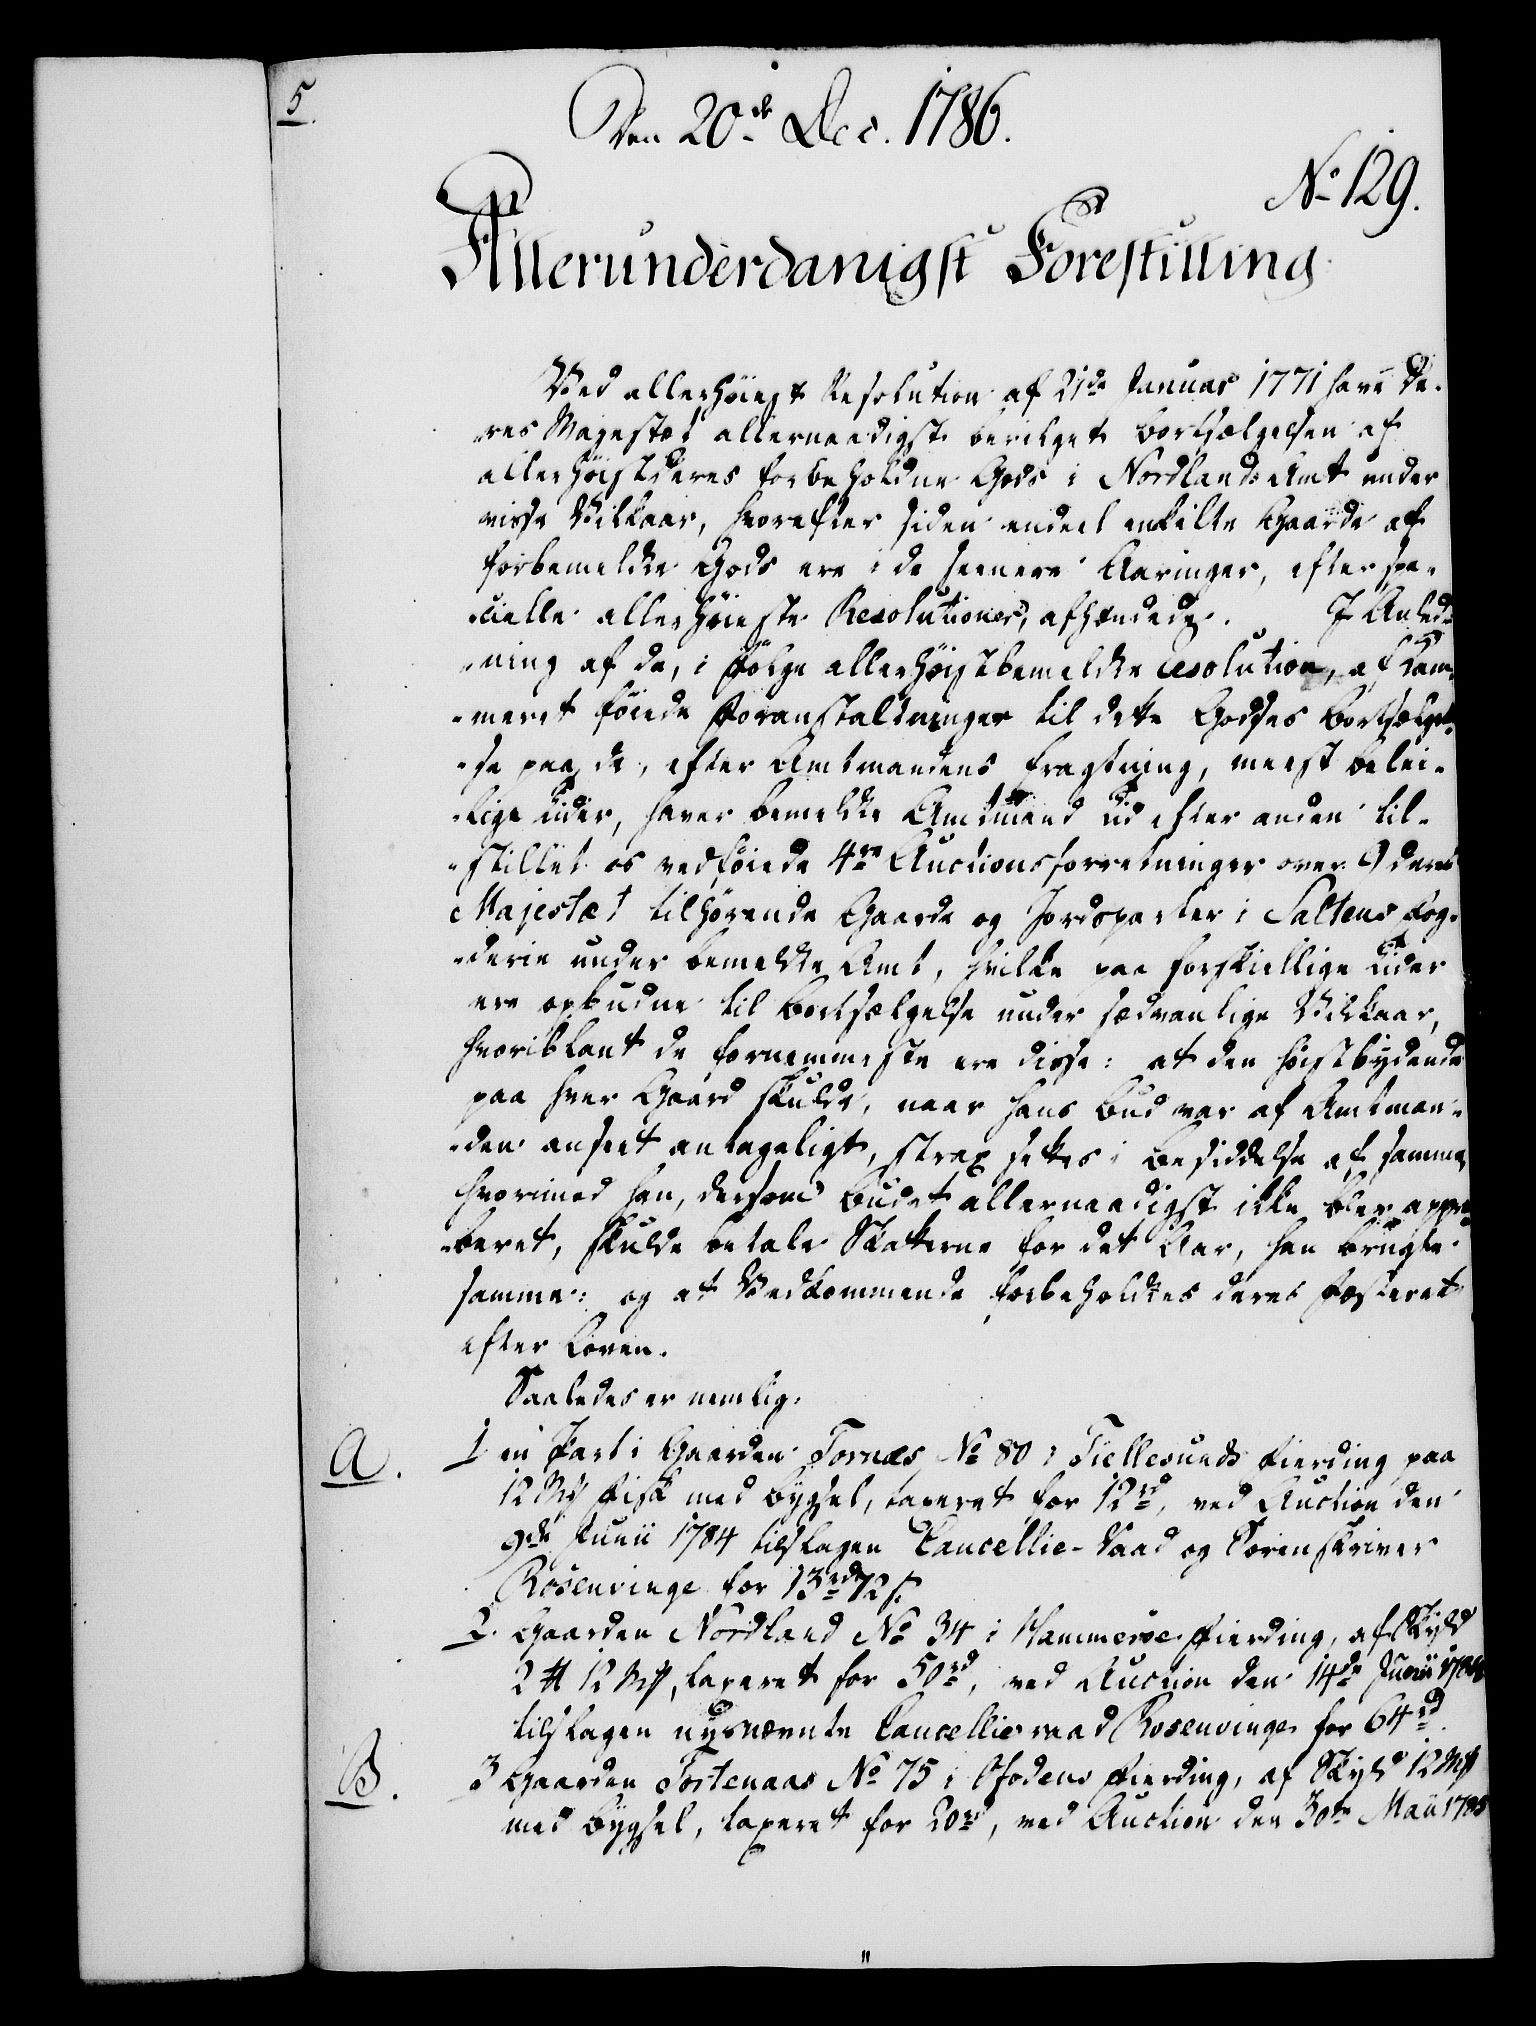 5.
Den 20de Dec. 1786.
No 129.
Allerunderdanigst Forestilling
Ved allerhöiest Resolution af 21de Januar 1771 have De-
-res Majestæt allernaadigst bevilget Bortsælgelsen af
allerhöistderes forbeholdne Gods i Nordlands Amt under
visse Vilkaar, hvorefter siden endeel enkelte Gaarde af
forbemeldte Gods ere i de seenere Aaringer, efter spe-
-cielle allerhöieste Resolutioner, afhændede. I Anled-
-ning af de, i Fölge allerhöistbemeldte Resolution, af Kam-
-meret föiede Foranstaltninger til dette Godses Bortsælgel-
-se paa de, efter Amtmandens Fragtning, meest belei-
-lige Tider, haver bemeldte Amtmand Tid efter anden til-
-stillet os vedföiede 4re Auctionsforretninger over 9 Deres
Majestæt tilhörende Gaarde og Jordsparter i Saltens Fog-
-derie under bemeldte Amt, hvilke paa forskiellige Tider
ere opbudne til Bortsælgelse under sædvanlige Vilkaar,
hvoriblant de fornemmeste ere disse: at den höistbydende
paa hver Gaard skulde, naar hans Bud var af Amtman-
-den anseet antageligt, strax settes i Besiddelse af samme,
hvorimod han, dersom Budet allernaadigst ikke blev appro-
-beret, skulde betale Skatterne for det Aar, han brugte
samme: og at Vedkommende forbeholdtes deres Fæsteret
efter Loven.
Saaledes er nemlig:
A. 1 en Part i Gaarden Tornæs No 80 i Fiellesunds Fierding paa
12 Mk Fisk med Bygsel, taxeret for 12rd, ved Auction den
9de Junii 1784 tilslagen Cancellie-Raad og Sorenskriver
Rosenvinge for 13rd 72 s.
2. Gaarden Nordland No 34 i Hammeröe Fierding, af Skyld
2 # 12 Mk, taxeret for 50rd, ved Auction den 14de Junii 1784
tilslagen nysnævnte Cancellieraad Rosenvinge for 64rd.
B. 3 Gaarden Tostenaas No 75 i Ofodens Fierding, af Skyld 12 Mk
med Bygsel, taxeret for 20rd, ved Auction den 30te Maii 1785